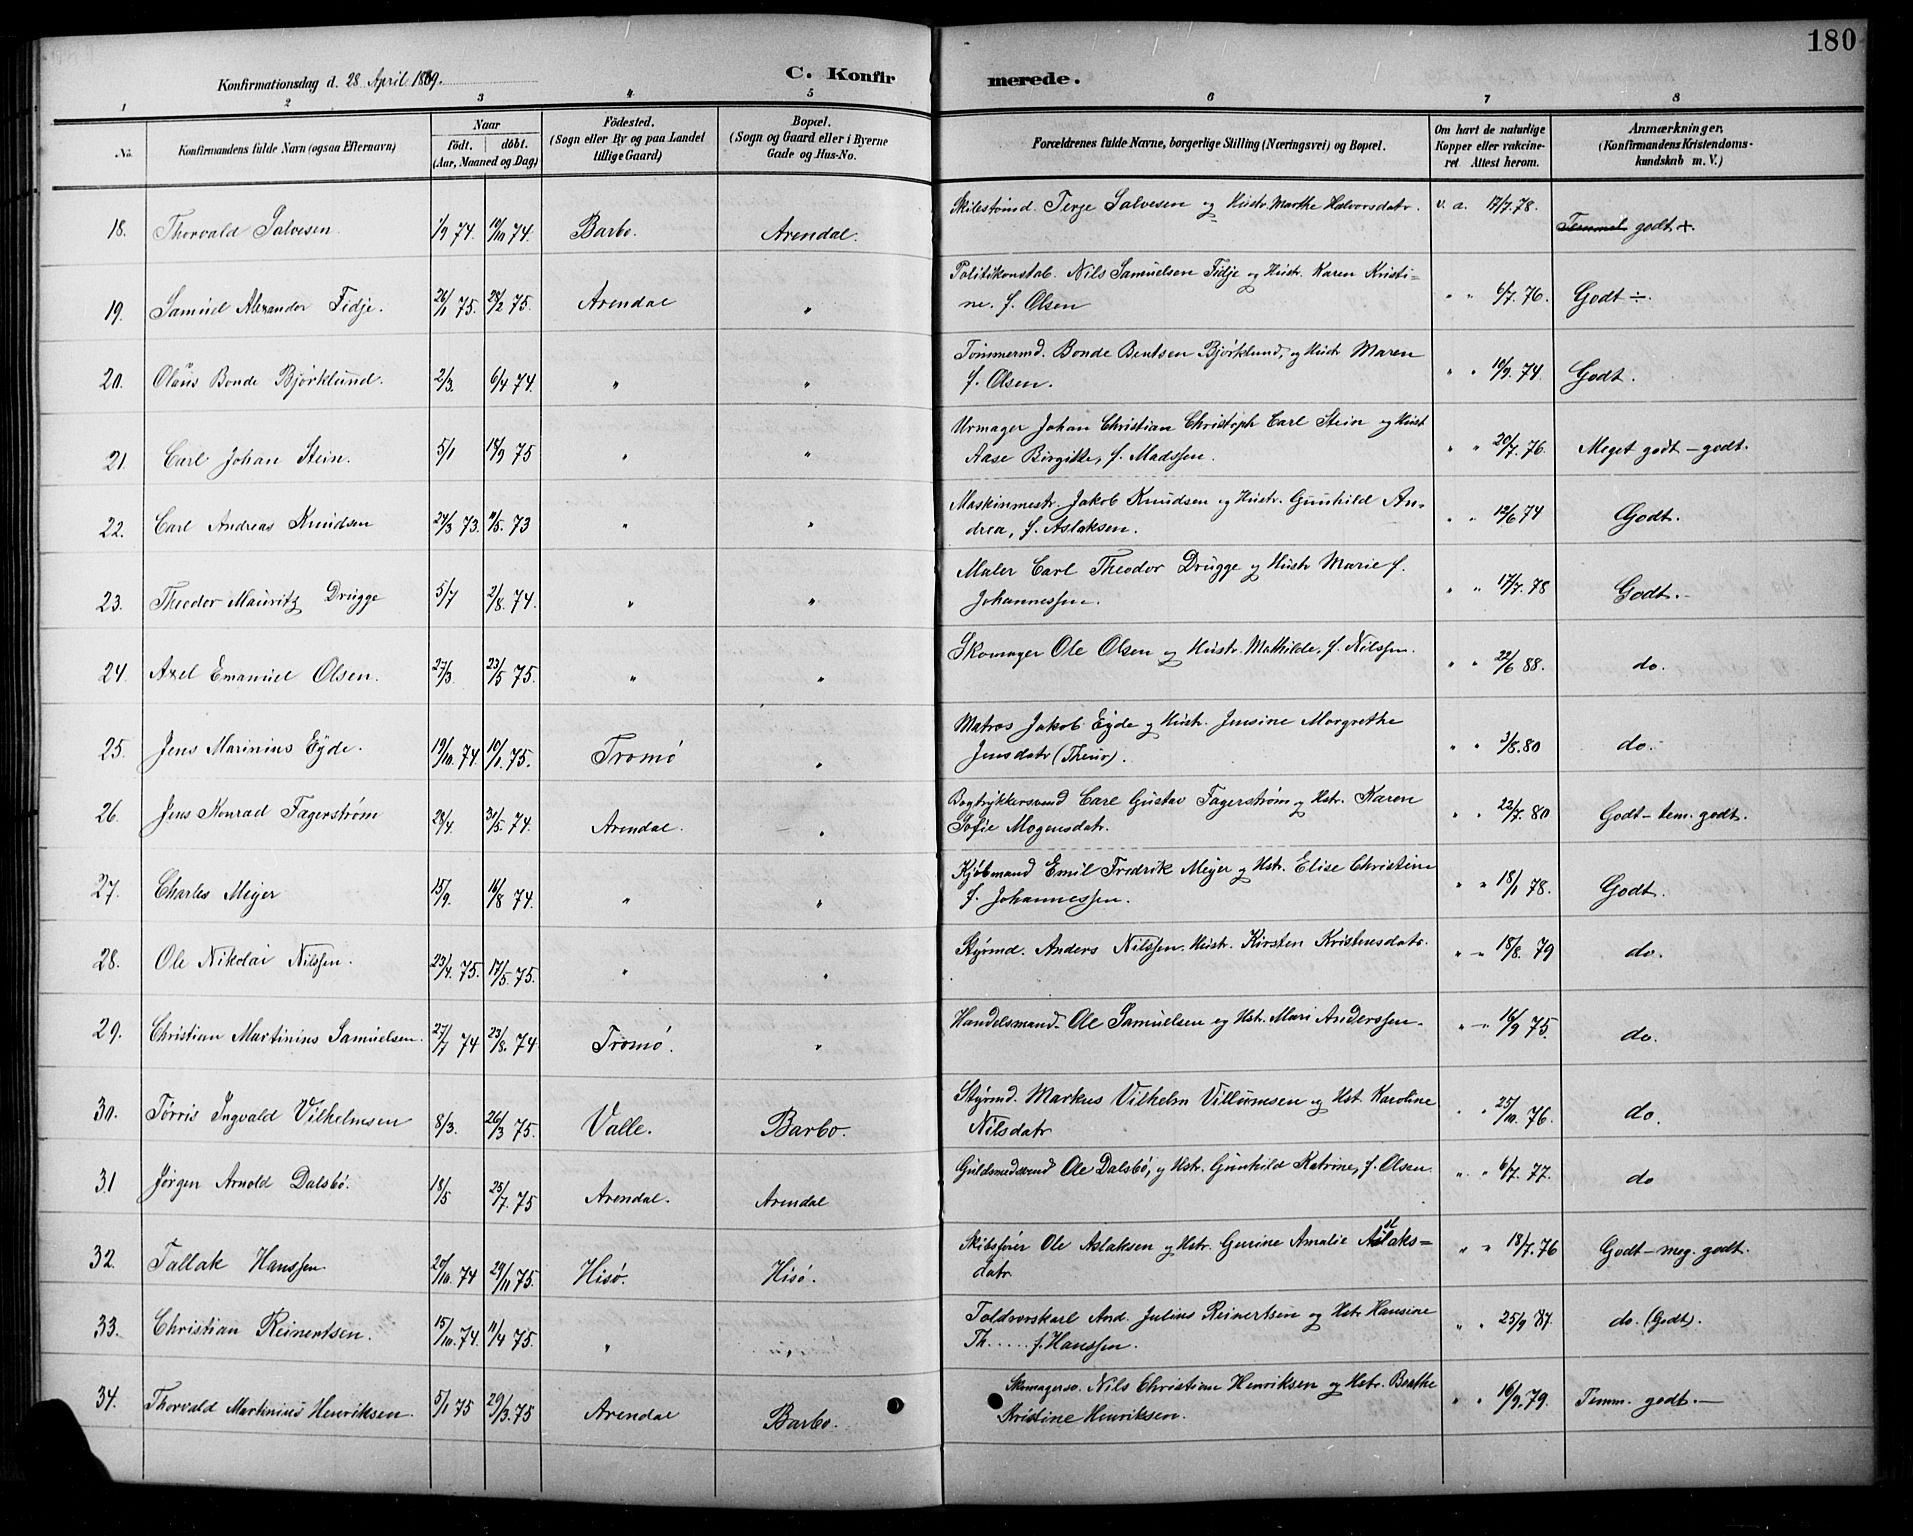 180
Konfirmationsdag d. 28 April 1889.
C. Konfirmerede.
1 2 3 4 5 6 7 8
No.
Konfirmandens fulde Navn (ogsaa Efternavn)
Naar
födt. döbt.
(Aar, Maaned og Dag)
Födested.
(Sogn eller By og paa Landet
tillige Gaard)
Bopæl.
(Sogn og Gaard eller i Byerne
Gade og Hus-No.
Forældrenes fulde Navne, borgerlige Stilling (Næringsvei) og Bopæl.
Om havt de naturlige
Kopper eller vakcine-
ret Attest herom.
Anmærkninger,
(Konfirmandens Kristendoms-
kundskab m. V.)
18. Thorvald Salvesen. 1/9 74. 19/10 74. Barbo. Arendal. Terje Salvesen og Hustr. Marthe Halvorsdatr. v. a. 17/7. 78. godt +.
19. Samuel Alexander Fidje. 26/1 75. 28/2 75. Arendal " Politikonstab. Nils Samuelsen Fidje og Hustr. Karen Kristi=
ne. f. Olsen " " 6/7. 76. Godt ÷.
20. Olaus Bonde Bjørklund. 2/3. 6/4 74. " " Tømmermd. Bonde Bentsen Bjørklund, og Hustr Maren
f. Olsen. " " 10/9. 74. Godt.
21. Carl Johan Stein. 5/1 18/9 75 " " Urmager Johan Christian Christoph Carl Stein og Hust
Aase Birgitte, f. Madssen. " " 20/7. 76. Meget godt – godt.
22. Carl Andreas Knudsen 24/3 73. 11/5. 73 " " Maskinmestr. Jakob Knudsen og Hustr. Gunhild An=
drea, f. Aslaksen. " " 12/6 74 Godt.
23. Theodor Mauritz Drugge 5/7 2/8. 74. " " Maler Carl Theodor Drugge og Hustr Marie f.
Johannessen. " " 17/7. 78 Godt.
24. Axel Emanuel Olsen. 27/3. 23/5 75. " " Skomager Ole Olsen og Hustr. Mathilde, f. Nilssen. " " 22/6 88. do.
25. Jens Marinius Eyde. 19/10. 74 10/1. 75. Tromö " Matros Jakob Eyde og Hustr. Jensine Margrethe
Jensdatr " " 3/8. 80 do.
26. Jens Konrad Fagerstrøm 28/4. 31/5. 74. Arendal. " Bogtrykkersvend Carl Gustav Fagerstrøm og Hstr. Karen
Sofie Mogensdatr. " " 22/7. 80 Godt – tem. godt.
27. Charles Meyer 15/9. 16/8 74. " " Kjøbmand Emil Fredrik Meyer og Hstr. Elise Christine
f. Johannessen. " " 18/1 78. Godt.
28. Ole Nikolai Nilssen. 23/4. 75. 17/5. 75. " " Styrmd. Anders Nilssen. Hustr. Kirsten Kristensdatr. " " 18/8. 79 do.
29. Christian Martinius Samuelsen. 27/7 74 23/8. 74 Tromö. " Handelsmand. Ole Samuelsen og Hstr. Mari Anderssen. " " 16/9 75. do.
30. Tørris Ingvald Vilhelmsen 8/3. 26/3 75. Valle. Barbo. Styrmd. Markus Vilhelm Villumsen og Hst. Karoline
Nilsdatr " " 25/10. 76. do.
31 Jørgen Arnold Dalsbö. 18/5 25/7. 75 Arendal. Arendal Guldsmedsvend Ole Dalsbö, og Hstr. Gunhild Katrine, f. Olsen. " " 6/7. 77. do
32. Tallak Hanssen 20/10. 74 29/11 75. Hisö. Hisö. Skibsfører Ole Aslaksen og Hstr. Gurine Amalie Aslaks=
datr. " " 18/7. 76 Godt – meg. godt.
33. Christian Reinertsen. 15/10. 74. 11/4 75. " " Toldvorskarl And. Julius Reinertsen og Hstr. Hansine
Th..... f. Hanssen. " " 25/9 87. do. (Godt).
34. Thorvald Martinius Henriksen. 5/1 75 29/3. 75 Arendal Barbo. Skomagersv. Nils Christian Henriksen og Hstr. Berthe
Kristine Henriksen. " " 16/9. 79. Temm. godt. –